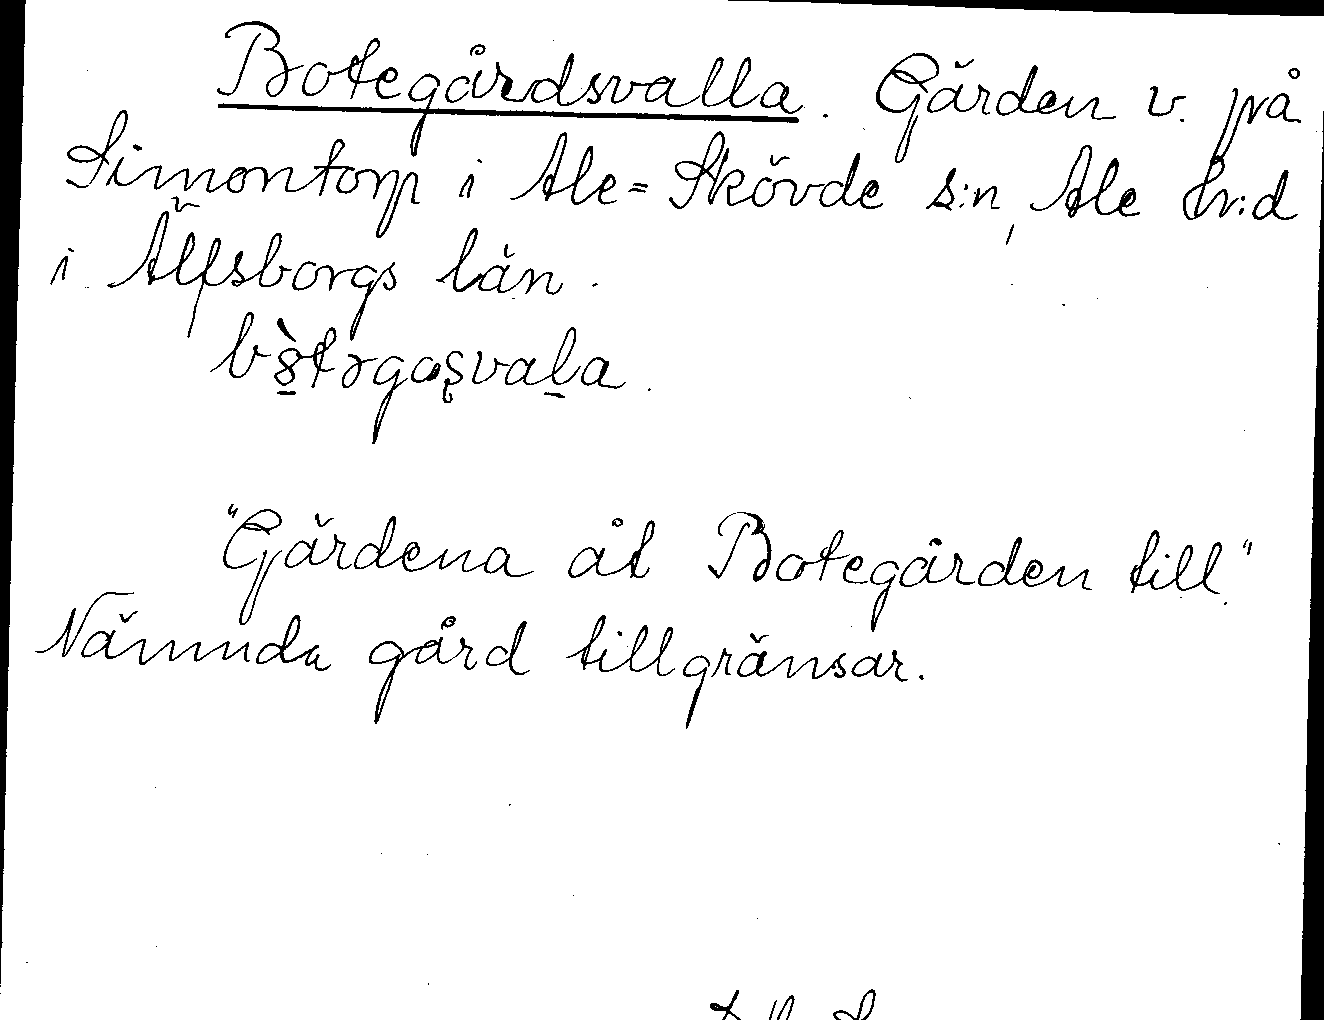 Botegårdsvalla. Gärden v. på
Simontorp i Ale=Skövde s:n, Ale hr:d
i Älfsborgs län.
"Gärdena åt Botegården till"
Nämnda gård tillgränsar.